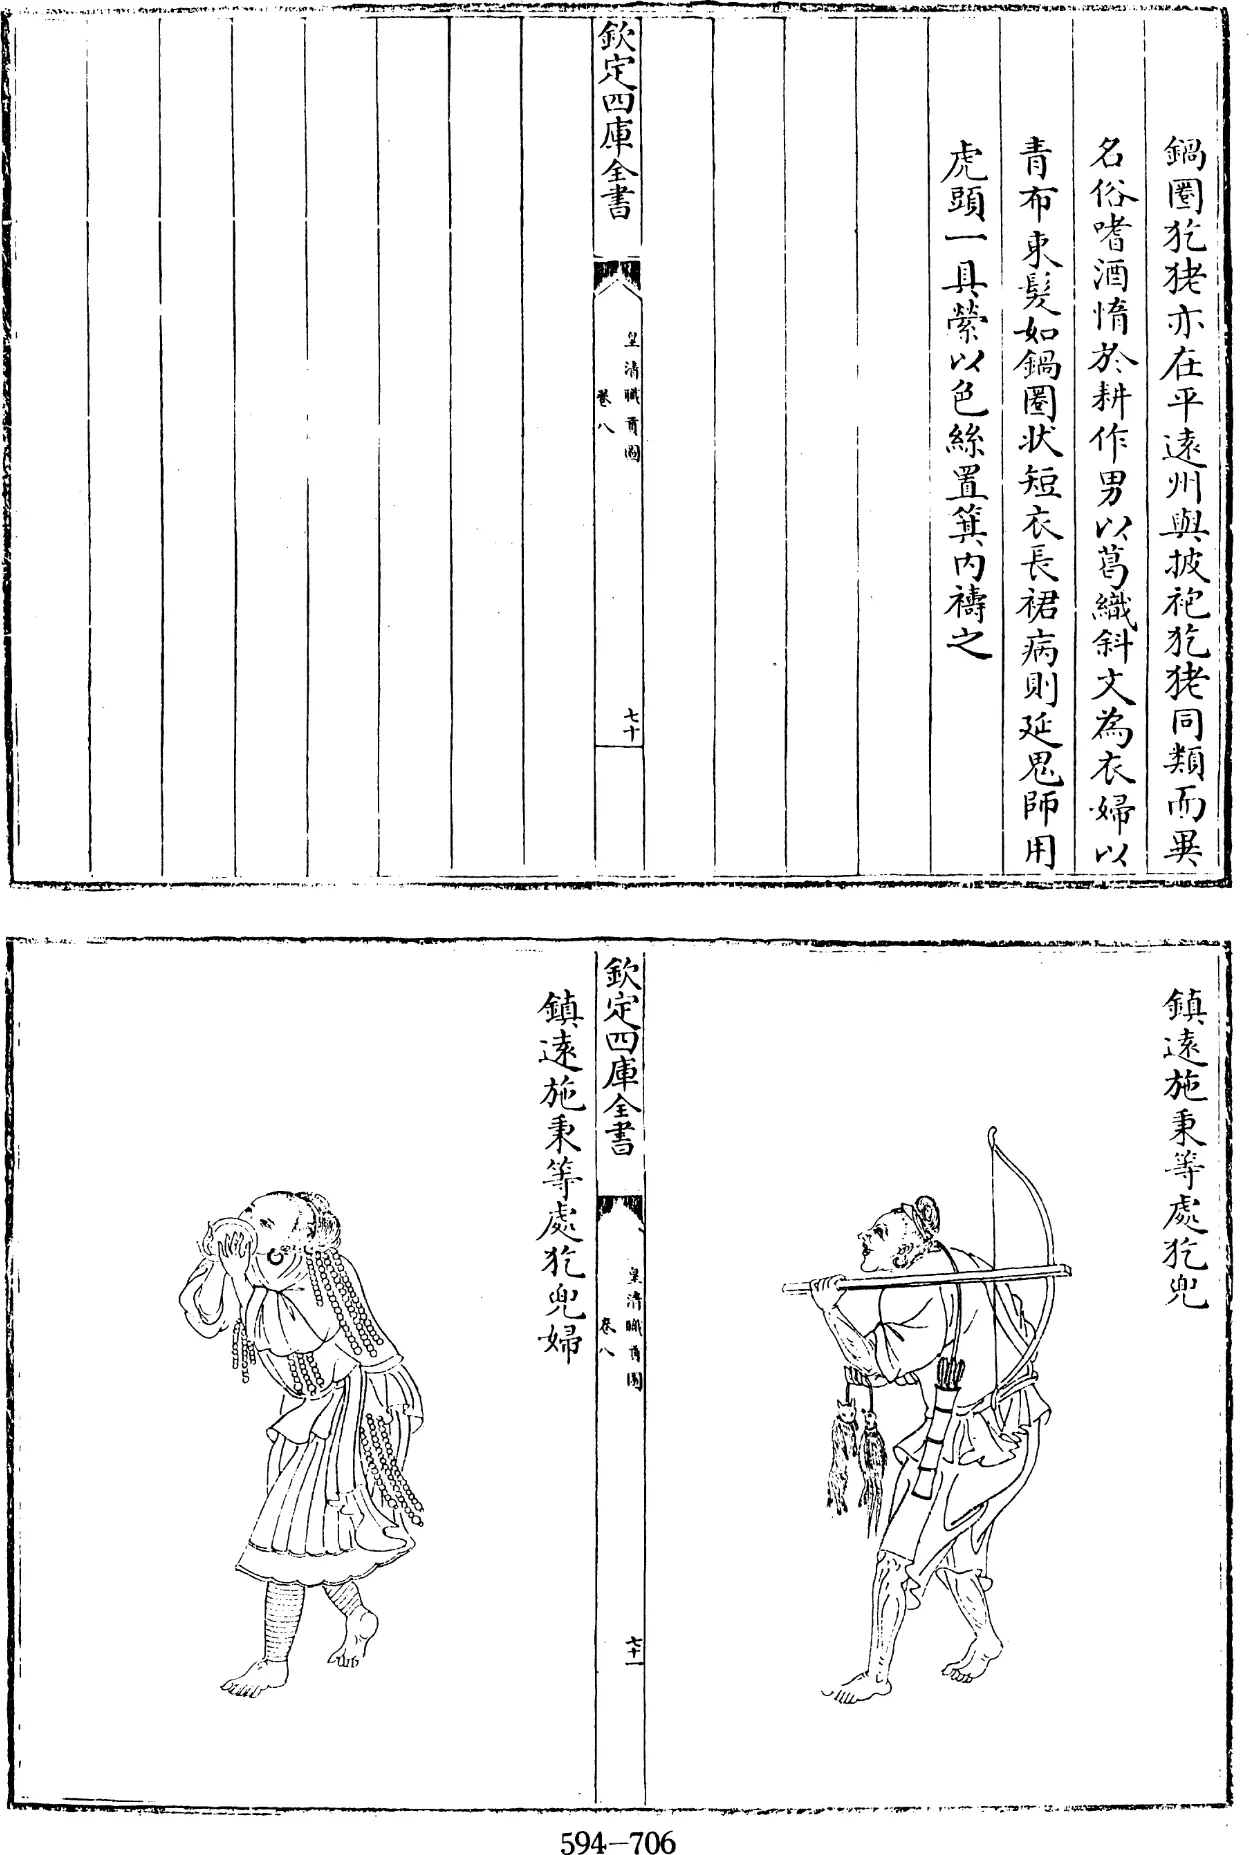 鍋圈犵狫亦在平遠州與披袍犵狫同類而異
名俗嗜酒惰於耕作男以葛織斜文為衣婦以
青布束髮如鍋圈狀短衣長裙病則延鬼師用
虎頭一具縈以色絲置箕内禱之
欽定四庫全書
皇清職貢圖
卷八
七十
鎮遠施秉等處犵兜
欽定四庫全書
皇清職貢圖
卷八
七十一
鎮遠施秉等處犵兜婦
594-706